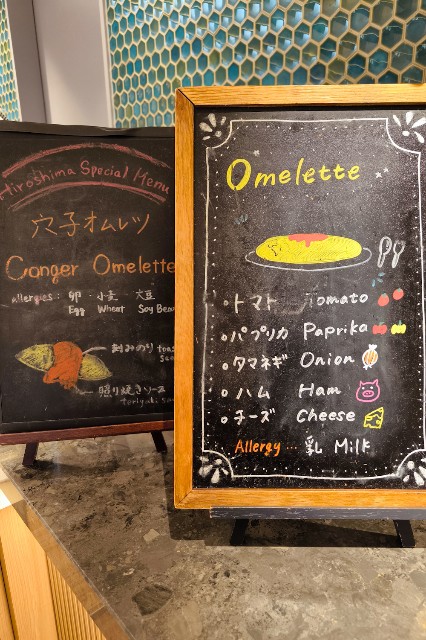 Hiroshima Special Menu
穴子オムレツ
Conger Omelette
allergies : 卵 ・ 小麦 大豆
Egg Wheat Soy Bean
刻みのり
照り焼きソース
teriyaki
Omelette
トマト Tomato
パプリカ Paprika
タマネギ Onion
ハム Ham
チーズ Cheese
Allergy … 乳 Milk